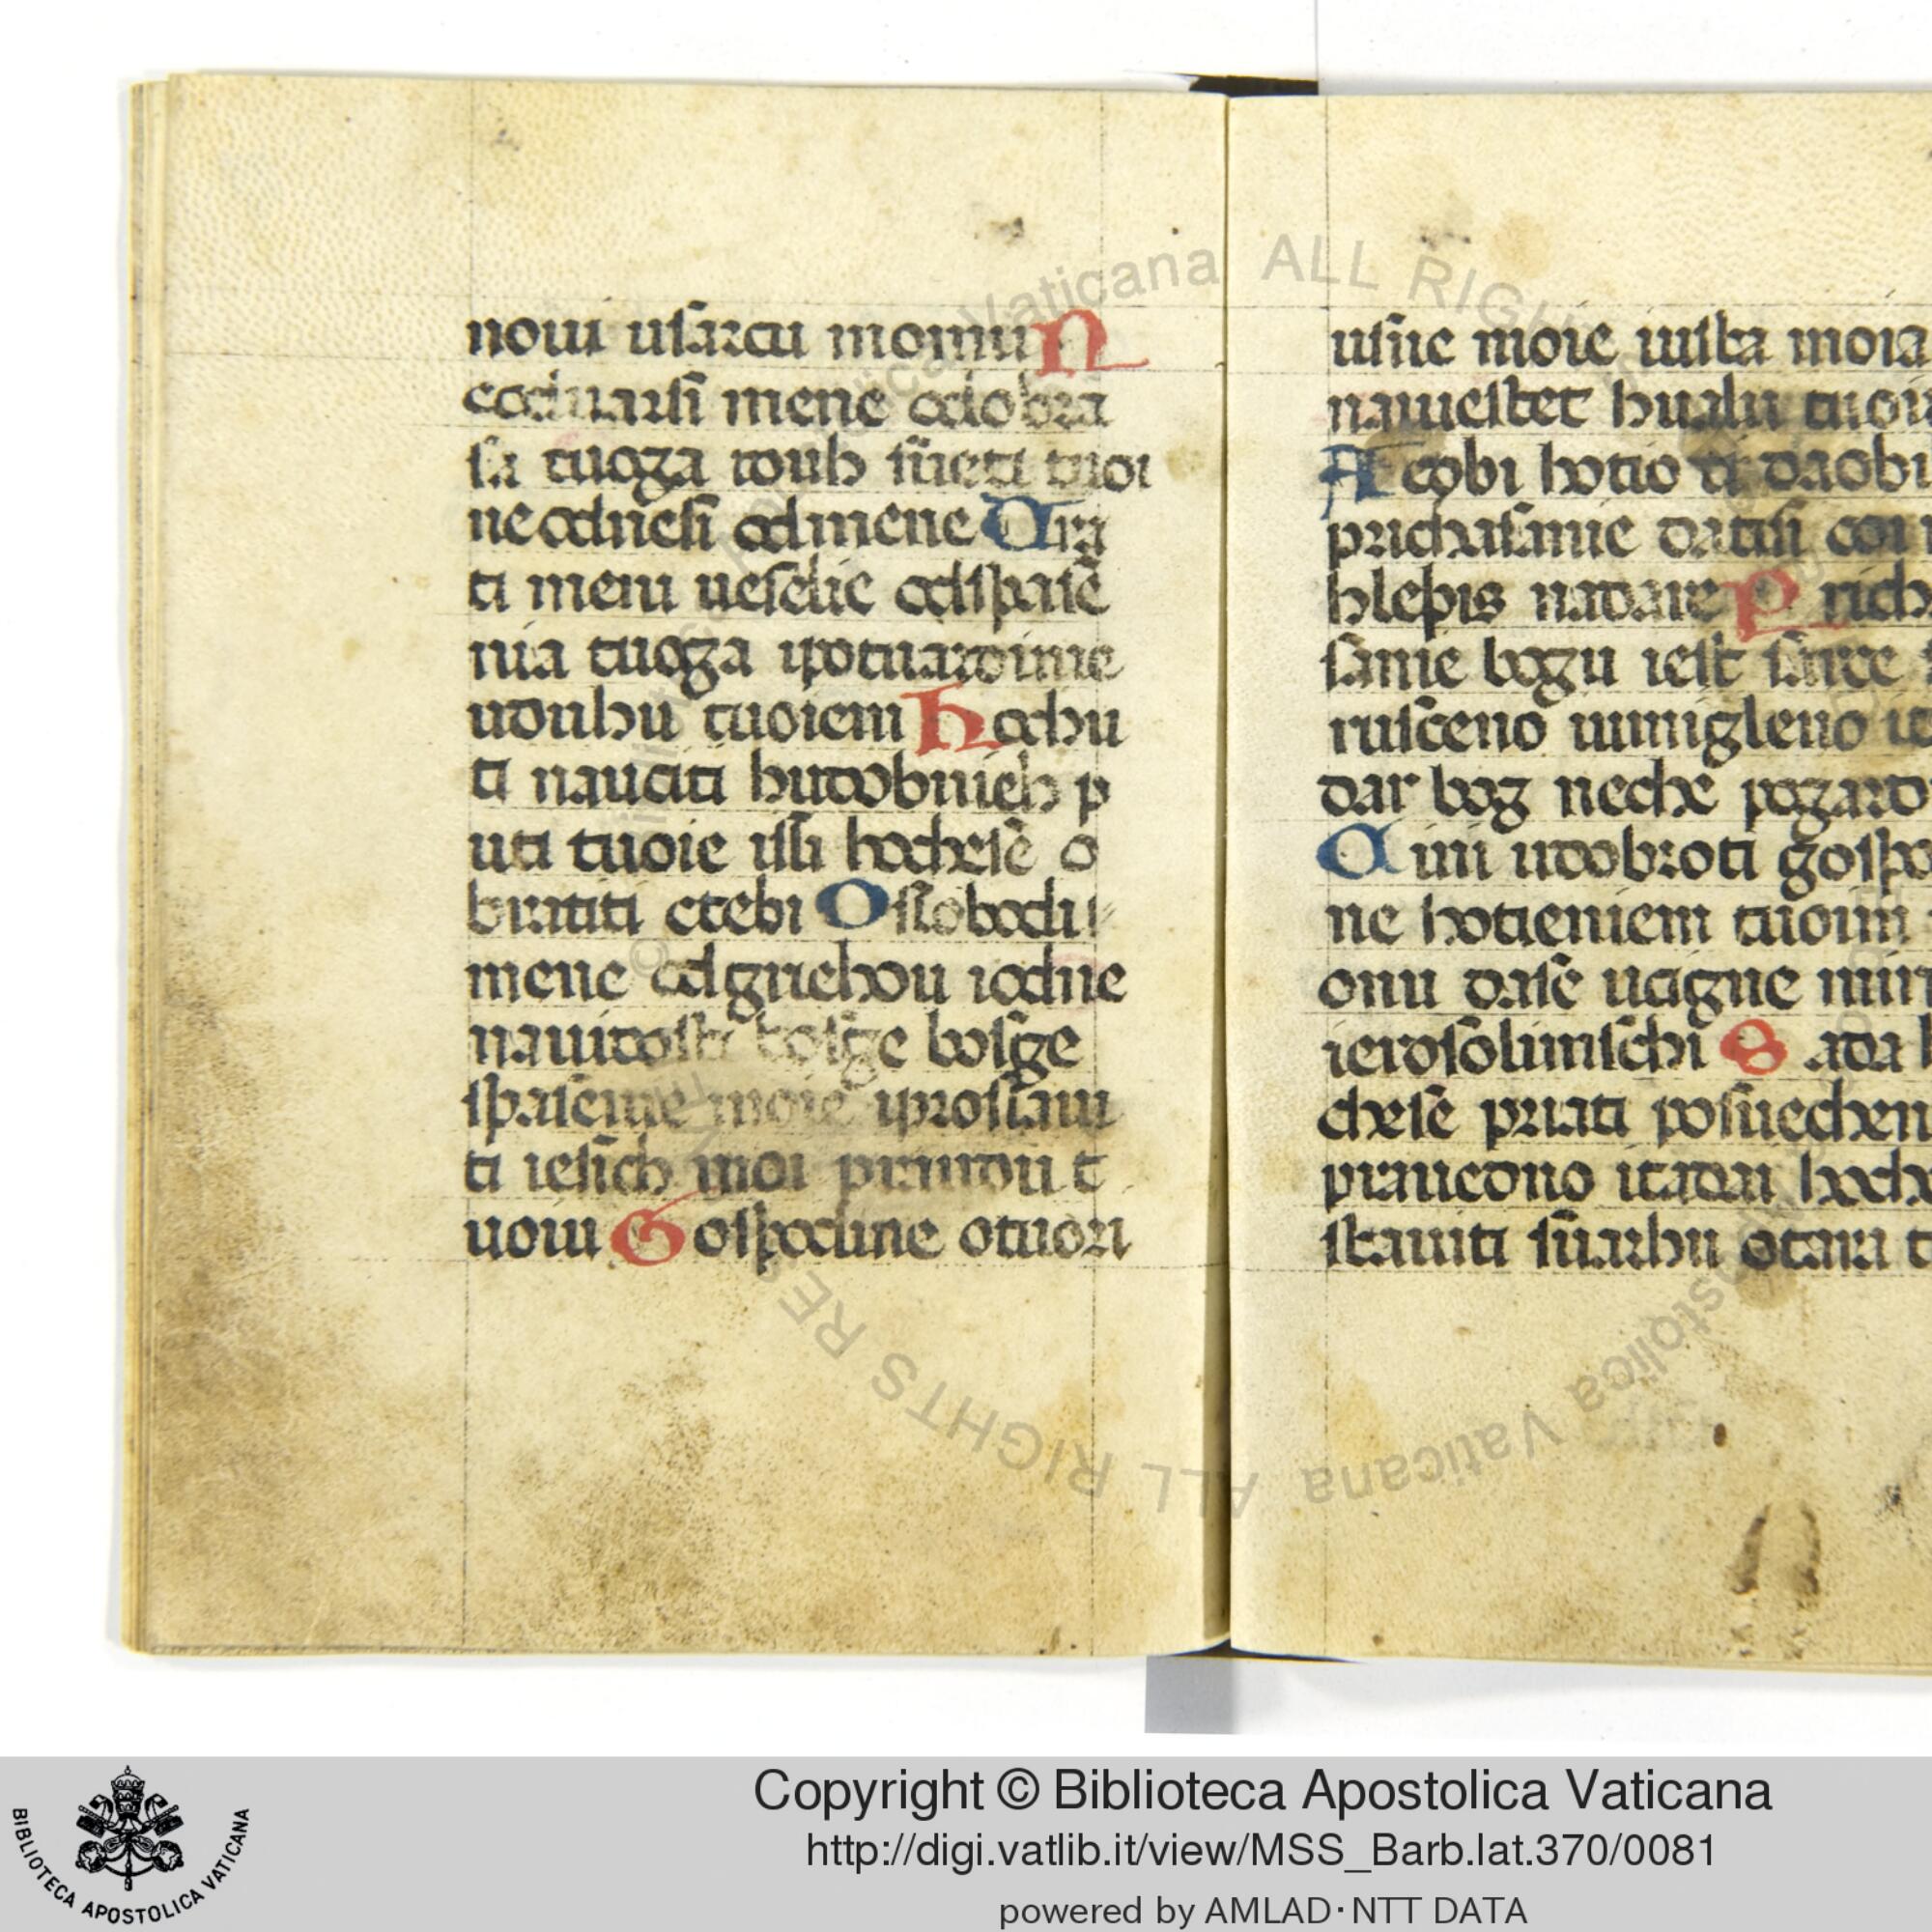 noui usarcu momu N
eoduarsi mene odobra
sa tuoga iduh sueti tuoi
ne odnesi odmene Ura
ti meni ueselie odspase
nia tuoga ipotuardime
uduhu tuoiem Hochu
ti nauciti hudobnieh p
uti tuoie issi hochese o
bratiti ctebi Oslobodi
mene odgriehou iodne
nauidosti bosge bosge
spasenie moie iproslaui
ti iesich moi prauidu t
uoiu Gospodine otuori
usne moie iusta moia
nauiestet hualu tuoiu
Acobi hotio ti daobi
prichasanie datisi coi
hlepis nadaie Prich
sanie bogu iest sarce s
rusceno iumigleno ie
dar bog neche pogard
Cini udobroti gospo
ne hotieniem tuoim
onu daise ucigne miri
ierosolimschi Sada h
chese priati posuechen
praucono itadai hoch
stauiti suarhu otara t
Copyright © Biblioteca Apostolica Vaticana
http://digi.vatlib.it/view/MSS_Barb.lat.370/0081
powered by AMLAD·NTT DATA
BIBLIOTECA APOSTOLICA VATICANA